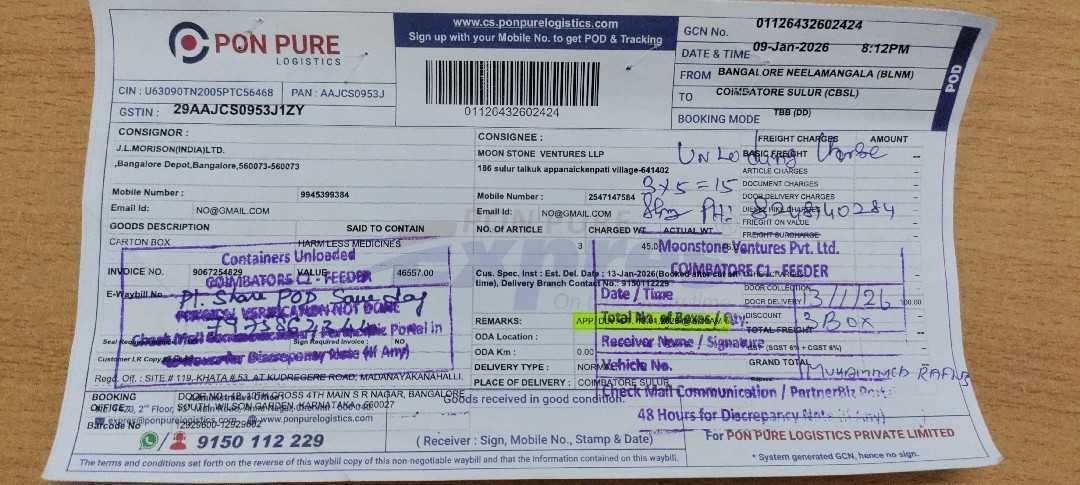 PON PURE
LOGISTICS
www.cs.ponpurelogistics.com
Sign up with your Mobile No. to get POD & Tracking
01126432602424
GCN No. 01126432602424
DATE & TIME 09-Jan-2026 8:12PM
FROM BANGALORE NEELAMANGALA (BLNM)
TO COIMBATORE SULUR (CBSL)
BOOKING MODE TBB (DD)
POD
CIN : U63090TN2005PTC56468 PAN : AAJCS0953J
GSTIN : 29AAJCS0953J1ZY
CONSIGNOR :
J.L.MORISON(INDIA)LTD.
,Bangalore Depot,Bangalore,560073-560073
Mobile Number : 9945399384
Email Id: NO@GMAIL.COM
CONSIGNEE :
MOON STONE VENTURES LLP
186 sulur talkuk appanaickenpati village-641402
Mobile Number : 2547147584
Email Id: NO@GMAIL.COM
FREIGHT CHARGES AMOUNT
BASIC FREIGHT
ARTICLE CHARGES
DOCUMENT CHARGES
DOOR DELIVERY CHARGES
FREIGHT ON VALUE
FREIGHT SURCHARGE
Unloading Charge
3 x 5 = 15
PH: 8248140284
GOODS DESCRIPTION SAID TO CONTAIN
CARTON BOX HARM LESS MEDICINES
NO. OF ARTICLE CHARGED WT ACTUAL WT
3 45.0
INVOICE NO. 9067254829 VALUE 46557.00
E-Waybill No.
Containers Unloaded
COIMBATORE C1 - FEEDER
Pl. Share POD Same day
PHYSICAL VERIFICATION NOT DONE
for Discrepancy Note (If Any)
Sign Required Invoice : NO
Customer LR Copy
Cus. Spec. Inst : Est. Del. Date : 13-Jan-2026(Booked after cut off
time), Delivery Branch Contact No.: 9150112229
REMARKS:
ODA Location :
ODA Km : 0.00
DELIVERY TYPE :
PLACE OF DELIVERY : COIMBATORE SULUR
Moonstone Ventures Pvt. Ltd.
COIMBATORE C1 - FEEDER
Date / Time 13/1/26
Total No. of Boxes / Qty. 3 Box
Receiver Name / Signature
Vehicle No.
Check Mail Communication / PartnerBiz
48 Hours for Discrepancy Note (If Any)
DOOR COLLECTION
DOOR DELIVERY 100.00
DISCOUNT
TOTAL FREIGHT
GST (SGST 6% + CGST 6%)
GRAND TOTAL
Regd. Off. : SITE # 119, KHATA # 53, AT KUDREGERE ROAD, MADANAYAKANAHALLI,
BOOKING OFFICE
DOOR NO : 49, 10TH CROSS 4TH MAIN S R NAGAR, BANGALORE
SOUTH, WILSON GARDEN, KARNATAKA - 560027
express@ponpurelogistics.com www.ponpurelogistics.com
Barcode No
9150 112 229
Goods received in good condition.
( Receiver : Sign, Mobile No., Stamp & Date)
For PON PURE LOGISTICS PRIVATE LIMITED
* System generated GCN, hence no sign.
The terms and conditions set forth on the reverse of this waybill copy of this non-negotiable waybill and that the Information contained on this waybill.